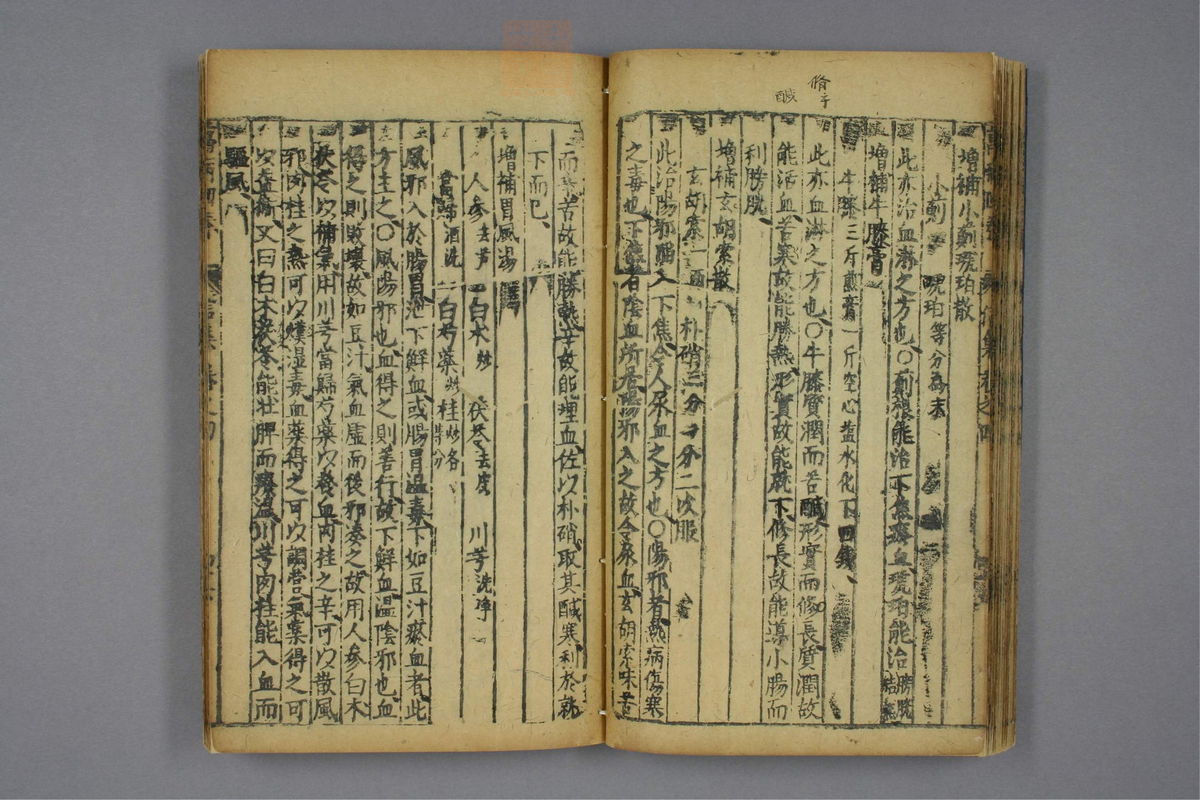 脩字
鹹
增補小薊琥珀散
小薊 琥珀等分為末
此亦治血淋之方也○薊根能治下焦瘀血琥珀能治膀胱結
增補牛膝膏
牛膝三斤煎膏一斤空心鹽水化下四錢
此亦血淋之方也○牛膝質潤而苦鹹形實而脩長質潤故
能活血苦寒故能勝熱形實故能就下修長故能導小腸而
利膀胱
增補玄胡索散
玄胡索一兩 朴硝三分 分二次服
此治陽邪陷入下焦令人尿血之方也○陽邪者熱病傷寒
之毒也下焦者陰血所居陽邪入之故令尿血玄胡索味苦
而 苦故能勝熱辛故能理血佐以朴硝取其鹹寒利於就
下而已
增補胃風湯
人參去芦 白朮炒 茯苓去皮 川芎洗淨
當歸酒洗 白芍藥炒 桂炒各等分
風邪入於腸胃泄下鮮血或腸胃溫毒下如豆汁瘀血者此
方主之○風陽邪也血得之則善行故下鮮血溫陰邪也血
得之則敗壞故如豆汁氣血虛而後邪奏之故用人參白朮
茯苓以補氣用川芎當歸芍藥以養血肉桂之辛可以散風
邪肉桂之熱可以燥湿毒血藥得之可以調營氣藥得之可
以益衛又曰白朮茯苓能壯脾而療濕川芎肉桂能入血而
驅風